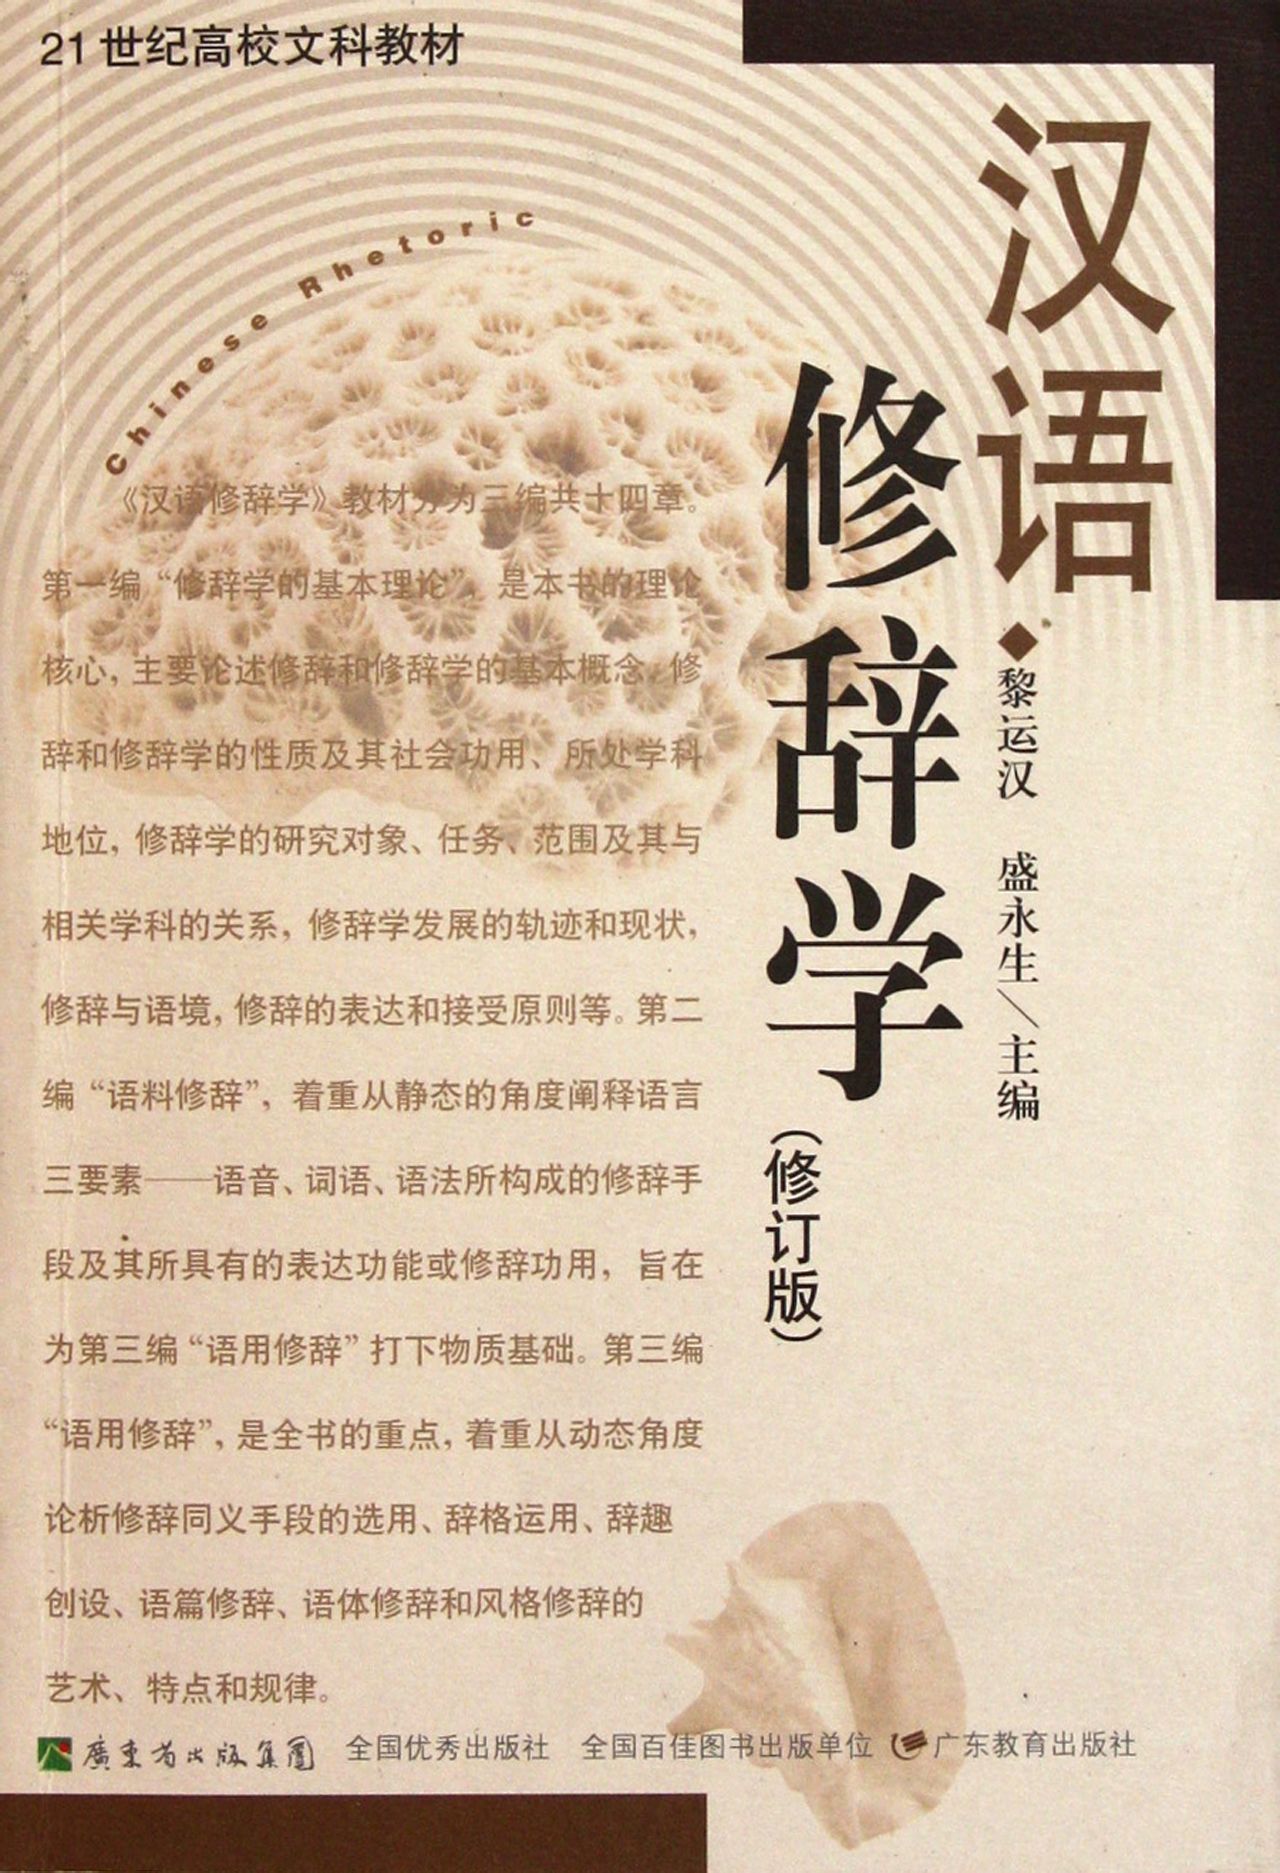 21世纪高校文科教材
汉语
修辞学
(修订版)
黎运汉 盛永生/主编
Chinese Rhetoric
《汉语修辞学》教材分为三编共十四章。
第一编“修辞学的基本理论”，是本书的理论
核心，主要论述修辞和修辞学的基本概念，修
辞和修辞学的性质及其社会功用、所处学科
地位，修辞学的研究对象、任务、范围及其与
相关学科的关系，修辞学发展的轨迹和现状，
修辞与语境，修辞的表达和接受原则等。第二
编“语料修辞”，着重从静态的角度阐释语言
三要素——语音、词语、语法所构成的修辞手
段及其所具有的表达功能或修辞功用，旨在
为第三编“语用修辞”打下物质基础。第三编
“语用修辞”，是全书的重点，着重从动态角度
论析修辞同义手段的选用、辞格运用、辞趣
创设、语篇修辞、语体修辞和风格修辞的
艺术、特点和规律。
廣東省出版集團 全国优秀出版社 全国百佳图书出版单位 广东教育出版社